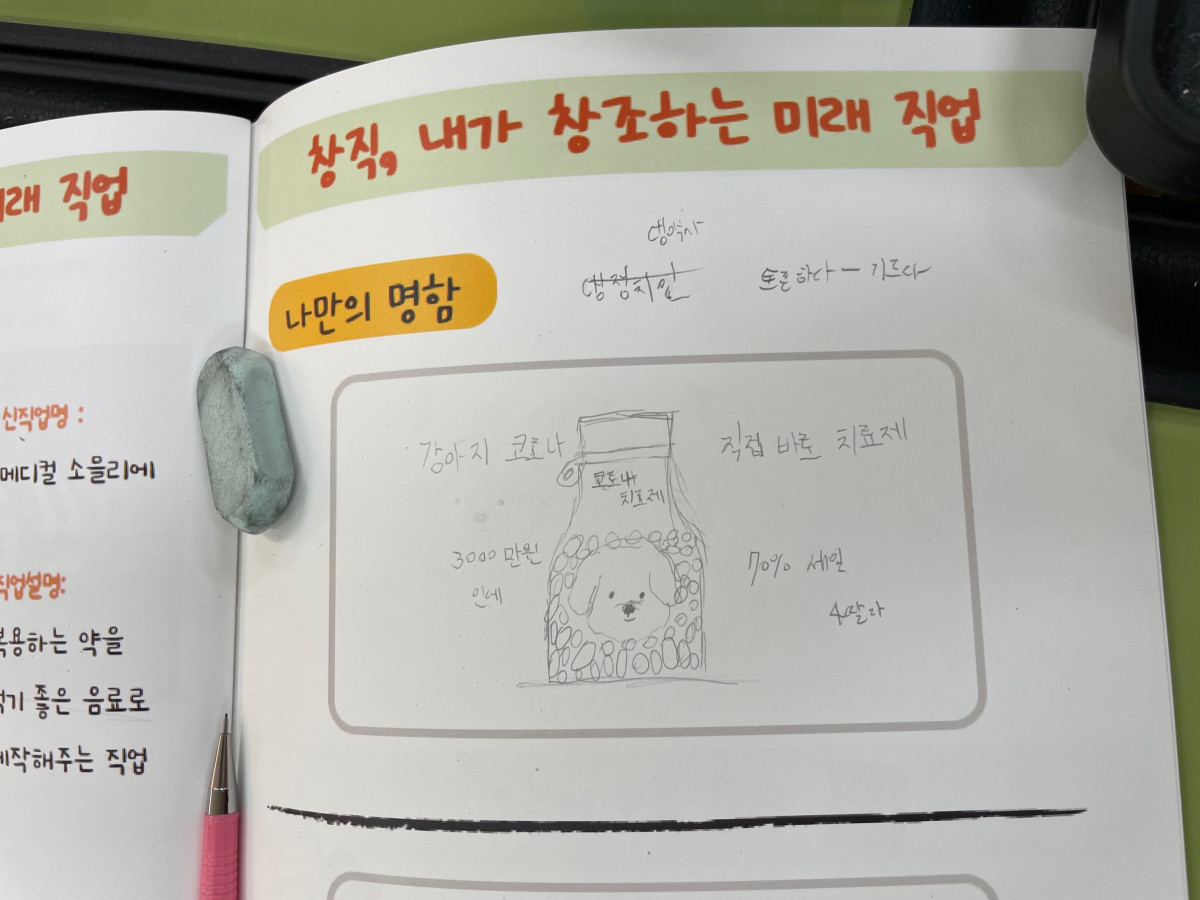 래 직업
신직업명 :
메디컬 소믈리에
직업설명:
복용하는 약을
먹기 좋은 음료로
제작해주는 직업
창직, 내가 창조하는 미래 직업
나만의 명함
생약사
기르다
강아지 코로나
직접 바로 치료제
코로나
치료제
3000만원
인데
70% 세일
4달라